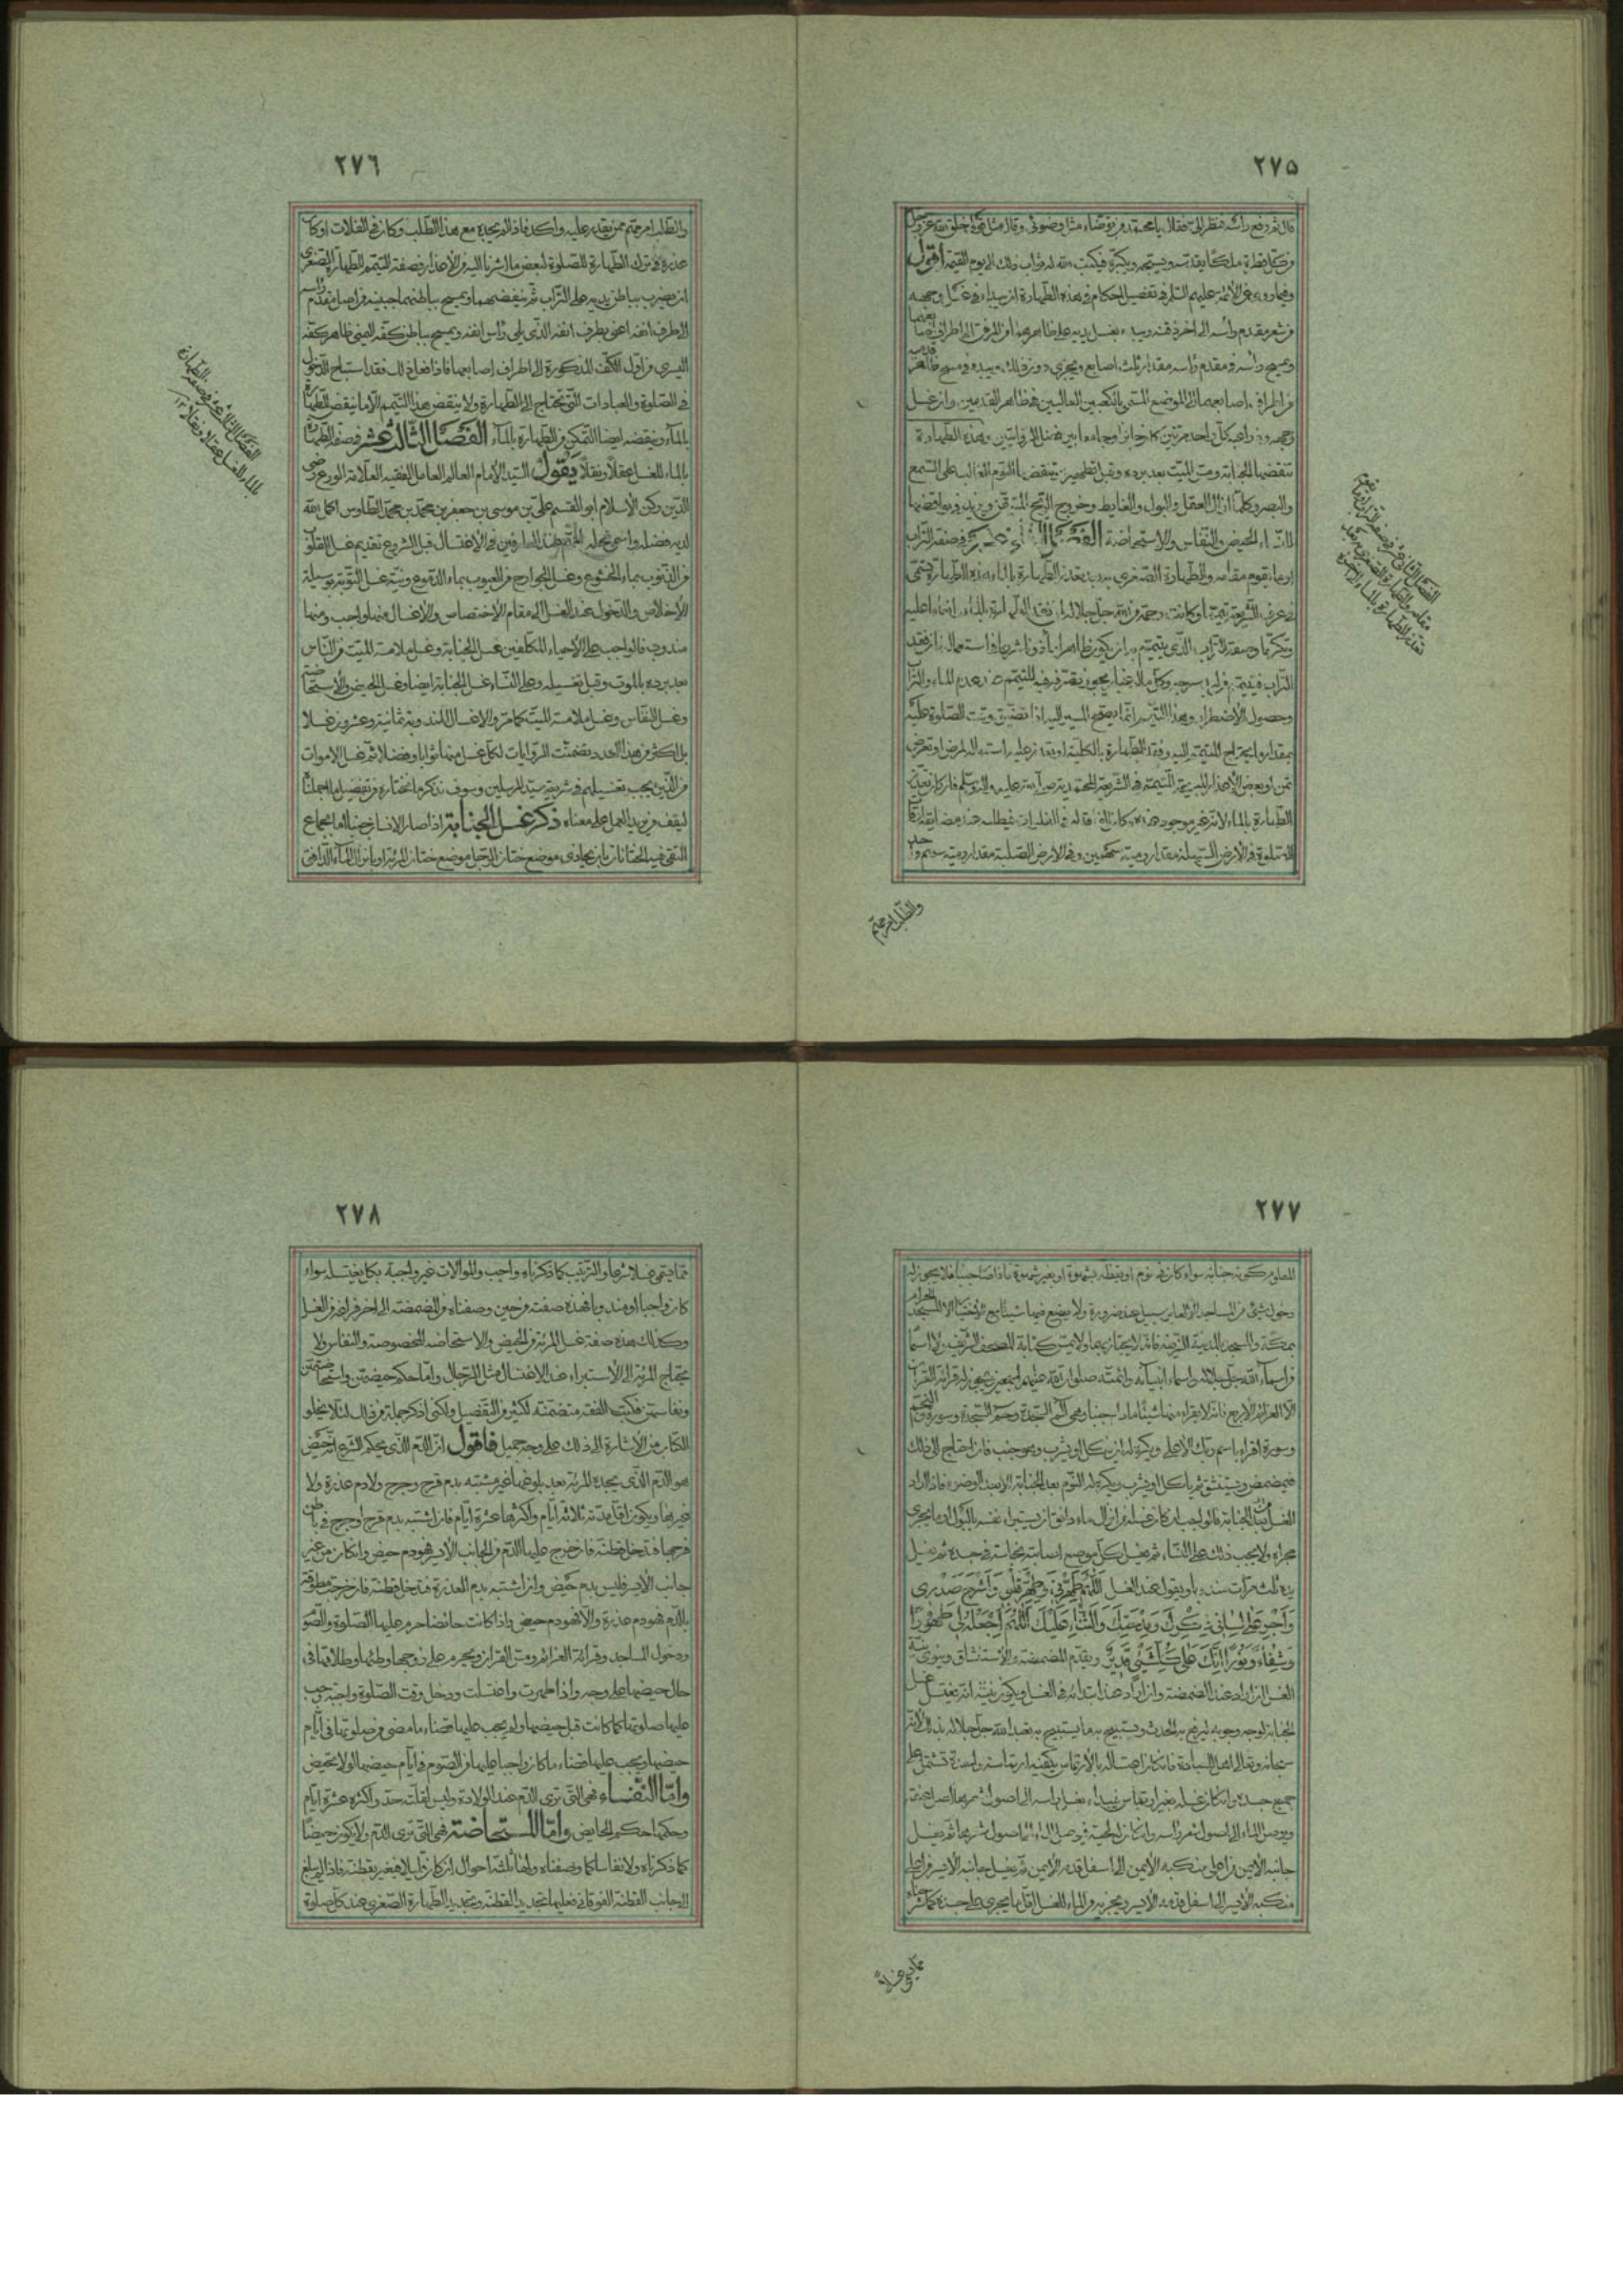 ٢٧٥
قال ثم رفع رأسه فنظر الىّ فقال يا محمد من توضأ مثل وضوئى وقال مثل قولى خلق الله عز وجل
من كل قطرة ملكا يقدسه ويسبحه ويكبره فيكتب الله له ثواب ذلك الى يوم القيمة أقول
وفيما روى عن الأئمة عليهم السلم فى تفصيل احكام هذه الطهارة ان يبداء فى غسل وجهه
من شعر مقدم رأسه الى اخر ذقنه ويبدء بغسل يديه على ظاهرهما من المرفق الى اطراف اصابعهما
ويمسح رأسه من مقدم رأسه مقدار ثلث اصابع ويجزى دون ذلك ويبدء فى مسح ظاهر قدميه
من اطراف اصابعهما الى الموضع المسمى بالكعبين العاليين فى ظاهر القدمين وان غسل
وجهه وذراعيه كل واحد مرتين كان جائزا وجامعا بين فضل الروايتين وهذه الطهارة
تنقضها الجنابة ومس الميت بعد برده وقبل تطهيره وينقضها النوم الغالب على السمع
والبصر وكلما ازال العقل والبول والغايط وخروج الريح المتيقن ويزيد فى نواقضها
للنساء الحيض والنفاس والاستحاضة الفصل الثانى عشر فى صفة التراب
او ما يقوم مقامه والطهارة الصغرى به بعد تعذر الطهارة بالماء هذه الطهارة تسمى
فى عرف الشريعة تيمما وكانت رحمة من الله جل جلاله لمن فقد الطهارة بالماء
وتكرما وصفة التراب الذى يتيمم به ان يكون طاهرا مأذونا شرعا فى استعماله فان فقد
التراب فيتيمم من لبد سرجه وكل ماله غبار يجوز التيمم منه عند عدم الماء والتراب
وحصول الاضطرار وهذا التيمم انما يصح المسير اليه اذا تضيق وقت الصلوة عليه
بمقدار ما يحتاج المتيمم اليه وفقد الطهارة بالكلية او تعذر عليه استعماله لمرض او تعرض
ثمن او بعض الاعذار المبيحة للتيمم فى الشريعة المحمدية صلى الله عليه واله وسلم فان كان تعذر
الطهارة بالماء لانه غير موجود
للصلوة فى الارض السهلة مقدار رمية سهمين وفى الارض الصلبة مقدار رمية سهم واحد
والطلب امر محتم
الفصل الثانى عشر فى صفة التراب او ما يقوم
مقامه والطهارة الصغرى به بعد
تعذر الطهارة بالماء
٢٧٦
والطلب امر محتم ممن يقدر عليه واكد فاذا لم يجده مع هذا الطلب وكان فى الفلات او كان
عذره فى ترك الطهارة للصلوة لبعض ما اشرنا اليه من الاعذار فصفة التيمم للطهارة الصغرى
ان يضرب بباطن يديه على التراب ثم ينفضهما ويمسح بباطنهما جبينه من اصل مقدم رأسه
الى طرف انفه اعنى بطرف انفه الذى يلى رأس انفه ويمسح بباطن كفه اليمنى ظاهر كفه
اليسرى من اول الكف المذكورة الى اطراف اصابعهما فاذا فعل ذلك فقد استباح الدخول
فى الصلوة والعبادات التى تحتاج الى الطهارة ولا ينقض هذا التيمم الا ما ينقض الطهارة
بالماء وينقضه ايضا التمكن من الطهارة بالماء الفصل الثالث عشر فى صفة الطهارة
بالماء للغسل عقلا ونقلا يقول السيد الامام العالم العامل الفقيه العلامة الورع رضى
الدين ركن الاسلام ابو القسم على بن موسى بن جعفر بن محمد بن محمد الطاوس اكمل الله
لديه فضله واسمى محله المهم عند العارفين فى الاغتسال قبل الشروع تقديم غسل القلوب
من الذنوب بماء الخشوع وغسل الجوارح من العيوب بماء الدموع ونية غسل التوبة بوسيلة
الاخلاص والدخول عند الغسل الى مقام الاختصاص والاغسال منها واجب ومنها
مندوب فالواجب على الاحياء المكلفين غسل الجنابة وغسل ملامسة الميت من الناس
بعد برده بالموت وقبل تغسيله وعلى النساء غسل الجنابة ايضا وغسل الحيض والاستحاضة
وغسل النفاس وغسل ملامسة الميت كما مر والاغسال المندوبة ثمانية وعشرون غسلا
بل اكثر من هذا العدد وتضمنت الروايات لكل غسل منها ثوابا وفضلا ثم غسل الاموات
من الذين يجب تغسيلهم فى شريعة سيد المرسلين وسوف نذكر ما نختاره من تفصيل ما اجملناه
ليقف من يريد العمل على معناه ذكر غسل الجنابة اذا صار الانسان جنبا اما بجماع
التقى فيه الختانان بان يحاذى موضع ختان الرجل موضع ختان المرئة او بانزال الماء الدافق
الفصل الثالث عشر فى صفة الطهارة
بالماء للغسل عقلا ونقلا ١٣
٢٧٧
المعلوم كونه جنابة سواء كان فى نوم او يقظة بشهوة او بغير شهوة فاذا صار جنبا فلا يجوز له
دخول شئ من المساجد الا لعابر سبيل عند ضرورة ولا يضع فيها شيئا مع الاختيار الا المسجد الحرام
بمكة والمسجد بالمدينة الشريفة فانه لا يجتاز بهما ولا يمس كتابة المصحف الشريف ولا اسما
من اسماء الله جل جلاله واسماء انبيائه وائمته صلوات الله عليهم اجمعين ويجوز له قرائة القرآن
الا العزائم الاربع فانه لا يقراء منها شيئا ما دام جنبا وهى الم السجدة وحم السجدة وسورة النجم
وسورة اقرا باسم ربك الاعلى ويكره له ان يأكل او يشرب وهو جنب فان احتاج الى ذلك
فيمضمض ويستنشق ثم يأكل او يشرب ويكره له النوم بعد الجنابة الا بعد الوضوء فاذا اراد
الغسل من الجنابة فالواجب ان كان غسله من انزال ماء دافق ان يستبرء نفسه بالبول او ما يجرى
مجراه ولا يجب ذلك على النساء ثم يغسل كل موضع اصابته نجاسة فى جسده ثم يغسل
يده ثلث مرات مندوبا ويقول عند الغسل اللهم طهرنى وطهر قلبى واشرح صدرى
واجر على لسانى ذكرك ومدحتك والثناء عليك اللهم اجعله لى طهورا
وشفاء ونورا انك على كل شئ قدير ويقدم المضمضة والاستنشاق وينوى نية
الغسل ان اراد عند المضمضة وان اراد عند ابتدائه فى الغسل ويكون نيته انه يغتسل غسل
الجنابة لوجه وجوبه ليرفع به الحدث ويستبيح به ما يستبيح به تعبد الله جل جلاله بذلك لانه
سبحانه وتعالى اهل للعبادة فان كان اغتساله بالارتماس يكفيه ارتماسة واحدة تشتمل على
جميع جسده وان كان غسله بغير ارتماس فيبداء بغسل رأسه الى اصول شعره الى اصل عنقه
ويوصل الماء الى اصول شعر رأسه وان كان له لحية فيوصل الماء الى اصول شعرها ثم يغسل
جانبه الايمن من اعلى منكبه الايمن الى اسفل قدمه الايمن ثم يغسل جانبه الايسر من اعلى
منكبه الايسر الى اسفل قدمه الايسر ويجزيه من الماء للغسل اقل ما يجرى على جسده كما شرحناه
مما يسمى غسلا
٢٧٨
مما يسمى غسلا شرعا والترتيب كما ذكرناه واجب والموالات غير واجبة بكل يغتسله سواء
كان واجبا او مندوبا فهذه صفته من حين وصفناه من المضمضة الى اخر فراغه من الغسل
وكذلك هذه صفة غسل المرئة من الحيض والاستحاضة المخصوصة والنفاس ولا
تحتاج المرئة الى الاستبراء عند الاغتسال مثل الرجال واما حكم حيضهن واستحاضتهن
ونفاسهن فكتب الفقه متضمنة لكثير من التفصيل ولكنى اذكر جملة من ذلك لئلا يخلو
الكتاب من الاشارة الى ذلك على وجه جميل فاقول ان الدم الذى يحكم الشرع انه حيض
هو الدم الذى يجده المرئة بعد بلوغها غير مشتبه بدم قرح وجرح ولا دم عذرة ولا
غيرها ويكون اقل مدته ثلاثة ايام واكثرها عشرة ايام فان اشتبه بدم قرح او جرح فى باطن
فرجها فتدخل قطنة فان خرج عليها الدم من الجانب الايسر فهو دم حيض وان كان من غير
جانب الايسر فليس بدم حيض وان اشتبه بدم العذرة فتدخل قطنة فان خرجت مطوقة
بالدم فهو دم عذرة والا فهو دم حيض واذا كانت حائضا حرم عليها الصلوة والصوم
ودخول المساجد وقرائة العزائم ومس القرآن ويحرم على زوجها وطئها وطلاقها فى
حال حيضها على وجه واذا طهرت واغتسلت ودخل وقت الصلوة واجبة وجب
عليها صلوتها كما كانت قبل حيضها ولم يجب عليها قضاء ما مضى من صلوتها فى ايام
حيضها ويجب عليها قضاء ما كان واجبا عليها من الصوم فى ايام حيضها لو لا تحيض
واما النفساء فهى التى ترى الدم عند الولادة وليس لقلته حد واكثره عشرة ايام
وحكمها حكم الحايض واما المستحاضة فهى التى ترى الدم ولا يكون حيضا
كما ذكرناه ولا نفاسا كما وصفناه ولها ثلثة احوال ان كان قليلا فهو بقطنة فاذا لم يبلغ
الى جانب القطنة الفوقانى فعليها تجديد القطنة وتجديد الطهارة الصغرى عند كل صلوة